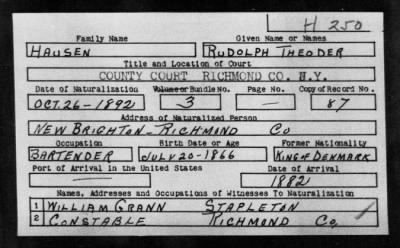 H 250
Family Name Given Name or Names
HAUSEN RUDOLPH THEODER
Title and Location of Court
COUNTY COURT RICHMOND CO. N.Y.
Date of Naturalization Volume or Bundle No. Page No. Copy of Record No.
OCT. 26-1892 3 — 87
Address of Naturalized Person
NEW BRIGHTON-RICHMOND Co
Occupation Birth Date or Age Former Nationality
BARTENDER JULY 20-1866 KING OF DENMARK
Port of Arrival in the United States Date of Arrival
1882
Names, Addresses and Occupations of Witnesses To Naturalization
1 WILLIAM GRANN STAPLETON
2 CONSTABLE RICHMOND Co.